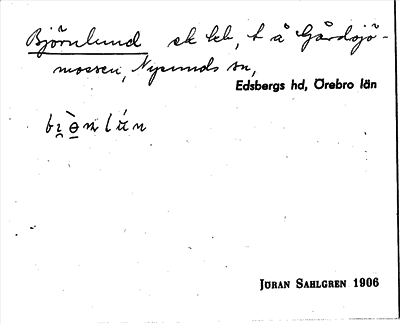 Björnlund sk kl, t å Gårdsjö-
mossen, Nysunds sn,
Edsbergs hd, Örebro län
JÖRAN SAHLGREN 1906